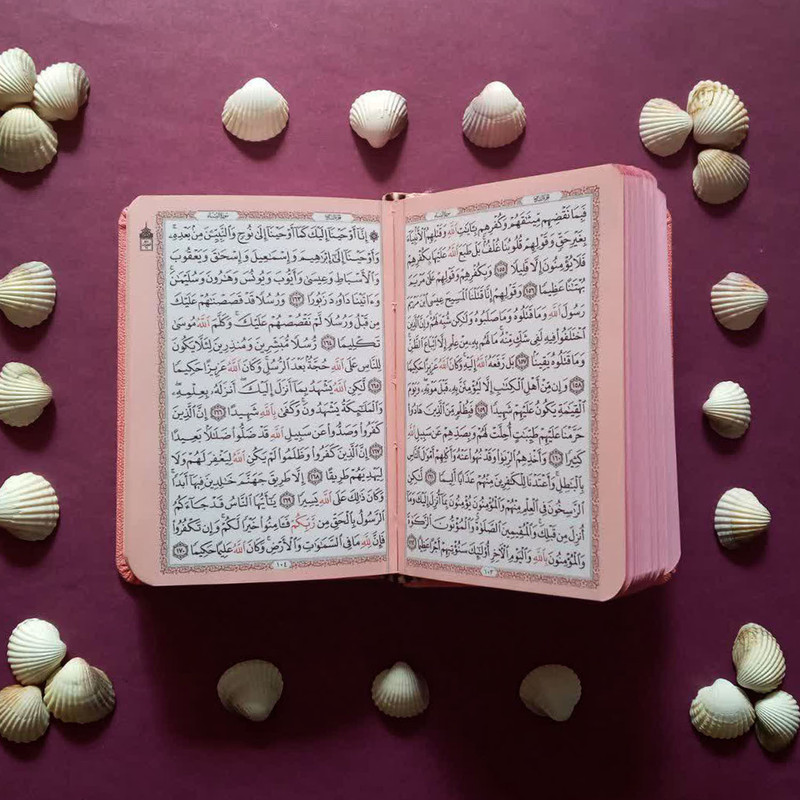 سُورَةُ النِّسَاءِ
الجُزْءُ السَّادِسُ
فَبِمَا نَقْضِهِم مِّيثَٰقَهُمْ وَكُفْرِهِم بِـَٔايَٰتِ ٱللَّهِ وَقَتْلِهِمُ ٱلْأَنۢبِيَآءَ
بِغَيْرِ حَقٍّ وَقَوْلِهِمْ قُلُوبُنَا غُلْفُۢۚ بَلْ طَبَعَ ٱللَّهُ عَلَيْهَا بِكُفْرِهِمْ
فَلَا يُؤْمِنُونَ إِلَّا قَلِيلًا ١٥٥ وَبِكُفْرِهِمْ وَقَوْلِهِمْ عَلَىٰ مَرْيَمَ
بُهْتَٰنًا عَظِيمًا ١٥٦ وَقَوْلِهِمْ إِنَّا قَتَلْنَا ٱلْمَسِيحَ عِيسَى ٱبْنَ مَرْيَمَ
رَسُولَ ٱللَّهِ وَمَا قَتَلُوهُ وَمَا صَلَبُوهُ وَلَٰكِن شُبِّهَ لَهُمْۚ وَإِنَّ ٱلَّذِينَ
ٱخْتَلَفُوا۟ فِيهِ لَفِى شَكٍّ مِّنْهُۚ مَا لَهُم بِهِۦ مِنْ عِلْمٍ إِلَّا ٱتِّبَاعَ ٱلظَّنِّۚ
وَمَا قَتَلُوهُ يَقِينًۢا ١٥٧ بَل رَّفَعَهُ ٱللَّهُ إِلَيْهِۚ وَكَانَ ٱللَّهُ عَزِيزًا حَكِيمًا
١٥٨ وَإِن مِّنْ أَهْلِ ٱلْكِتَٰبِ إِلَّا لَيُؤْمِنَنَّ بِهِۦ قَبْلَ مَوْتِهِۦۖ وَيَوْمَ
ٱلْقِيَٰمَةِ يَكُونُ عَلَيْهِمْ شَهِيدًا ١٥٩ فَبِظُلْمٍ مِّنَ ٱلَّذِينَ هَادُوا۟
حَرَّمْنَا عَلَيْهِمْ طَيِّبَٰتٍ أُحِلَّتْ لَهُمْ وَبِصَدِّهِمْ عَن سَبِيلِ ٱللَّهِ
كَثِيرًا ١٦٠ وَأَخْذِهِمُ ٱلرِّبَوٰا۟ وَقَدْ نُهُوا۟ عَنْهُ وَأَكْلِهِمْ أَمْوَٰلَ ٱلنَّاسِ
بِٱلْبَٰطِلِۚ وَأَعْتَدْنَا لِلْكَٰفِرِينَ مِنْهُمْ عَذَابًا أَلِيمًا ١٦١ لَّٰكِنِ
ٱلرَّٰسِخُونَ فِى ٱلْعِلْمِ مِنْهُمْ وَٱلْمُؤْمِنُونَ يُؤْمِنُونَ بِمَآ أُنزِلَ إِلَيْكَ وَمَآ
أُنزِلَ مِن قَبْلِكَۚ وَٱلْمُقِيمِينَ ٱلصَّلَوٰةَۚ وَٱلْمُؤْتُونَ ٱلزَّكَوٰةَ
وَٱلْمُؤْمِنُونَ بِٱللَّهِ وَٱلْيَوْمِ ٱلْءَاخِرِ أُو۟لَٰٓئِكَ سَنُؤْتِيهِمْ أَجْرًا عَظِيمًا ١٦٢
١٠٣
الجُزْءُ السَّادِسُ
سُورَةُ النِّسَاءِ
۞ إِنَّآ أَوْحَيْنَآ إِلَيْكَ كَمَآ أَوْحَيْنَآ إِلَىٰ نُوحٍ وَٱلنَّبِيِّـۧنَ مِنۢ بَعْدِهِۦۚ
وَأَوْحَيْنَآ إِلَىٰٓ إِبْرَٰهِيمَ وَإِسْمَٰعِيلَ وَإِسْحَٰقَ وَيَعْقُوبَ
وَٱلْأَسْبَاطِ وَعِيسَىٰ وَأَيُّوبَ وَيُونُسَ وَهَٰرُونَ وَسُلَيْمَٰنَۚ
وَءَاتَيْنَا دَاوُۥدَ زَبُورًا ١٦٣ وَرُسُلًا قَدْ قَصَصْنَٰهُمْ عَلَيْكَ
مِن قَبْلُ وَرُسُلًا لَّمْ نَقْصُصْهُمْ عَلَيْكَۚ وَكَلَّمَ ٱللَّهُ مُوسَىٰ
تَكْلِيمًا ١٦٤ رُّسُلًا مُّبَشِّرِينَ وَمُنذِرِينَ لِئَلَّا يَكُونَ
لِلنَّاسِ عَلَى ٱللَّهِ حُجَّةُۢ بَعْدَ ٱلرُّسُلِۚ وَكَانَ ٱللَّهُ عَزِيزًا حَكِيمًا
١٦٥ لَّٰكِنِ ٱللَّهُ يَشْهَدُ بِمَآ أَنزَلَ إِلَيْكَۖ أَنزَلَهُۥ بِعِلْمِهِۦۖ
وَٱلْمَلَٰٓئِكَةُ يَشْهَدُونَۚ وَكَفَىٰ بِٱللَّهِ شَهِيدًا ١٦٦ إِنَّ ٱلَّذِينَ
كَفَرُوا۟ وَصَدُّوا۟ عَن سَبِيلِ ٱللَّهِ قَدْ ضَلُّوا۟ ضَلَٰلًۢا بَعِيدًا
١٦٧ إِنَّ ٱلَّذِينَ كَفَرُوا۟ وَظَلَمُوا۟ لَمْ يَكُنِ ٱللَّهُ لِيَغْفِرَ لَهُمْ وَلَا
لِيَهْدِيَهُمْ طَرِيقًا ١٦٨ إِلَّا طَرِيقَ جَهَنَّمَ خَٰلِدِينَ فِيهَآ أَبَدًاۚ
وَكَانَ ذَٰلِكَ عَلَى ٱللَّهِ يَسِيرًا ١٦٩ يَٰٓأَيُّهَا ٱلنَّاسُ قَدْ جَآءَكُمُ
ٱلرَّسُولُ بِٱلْحَقِّ مِن رَّبِّكُمْ فَـَٔامِنُوا۟ خَيْرًا لَّكُمْۚ وَإِن تَكْفُرُوا۟
فَإِنَّ لِلَّهِ مَا فِى ٱلسَّمَٰوَٰتِ وَٱلْأَرْضِۚ وَكَانَ ٱللَّهُ عَلِيمًا حَكِيمًا ١٧٠
١٠٤